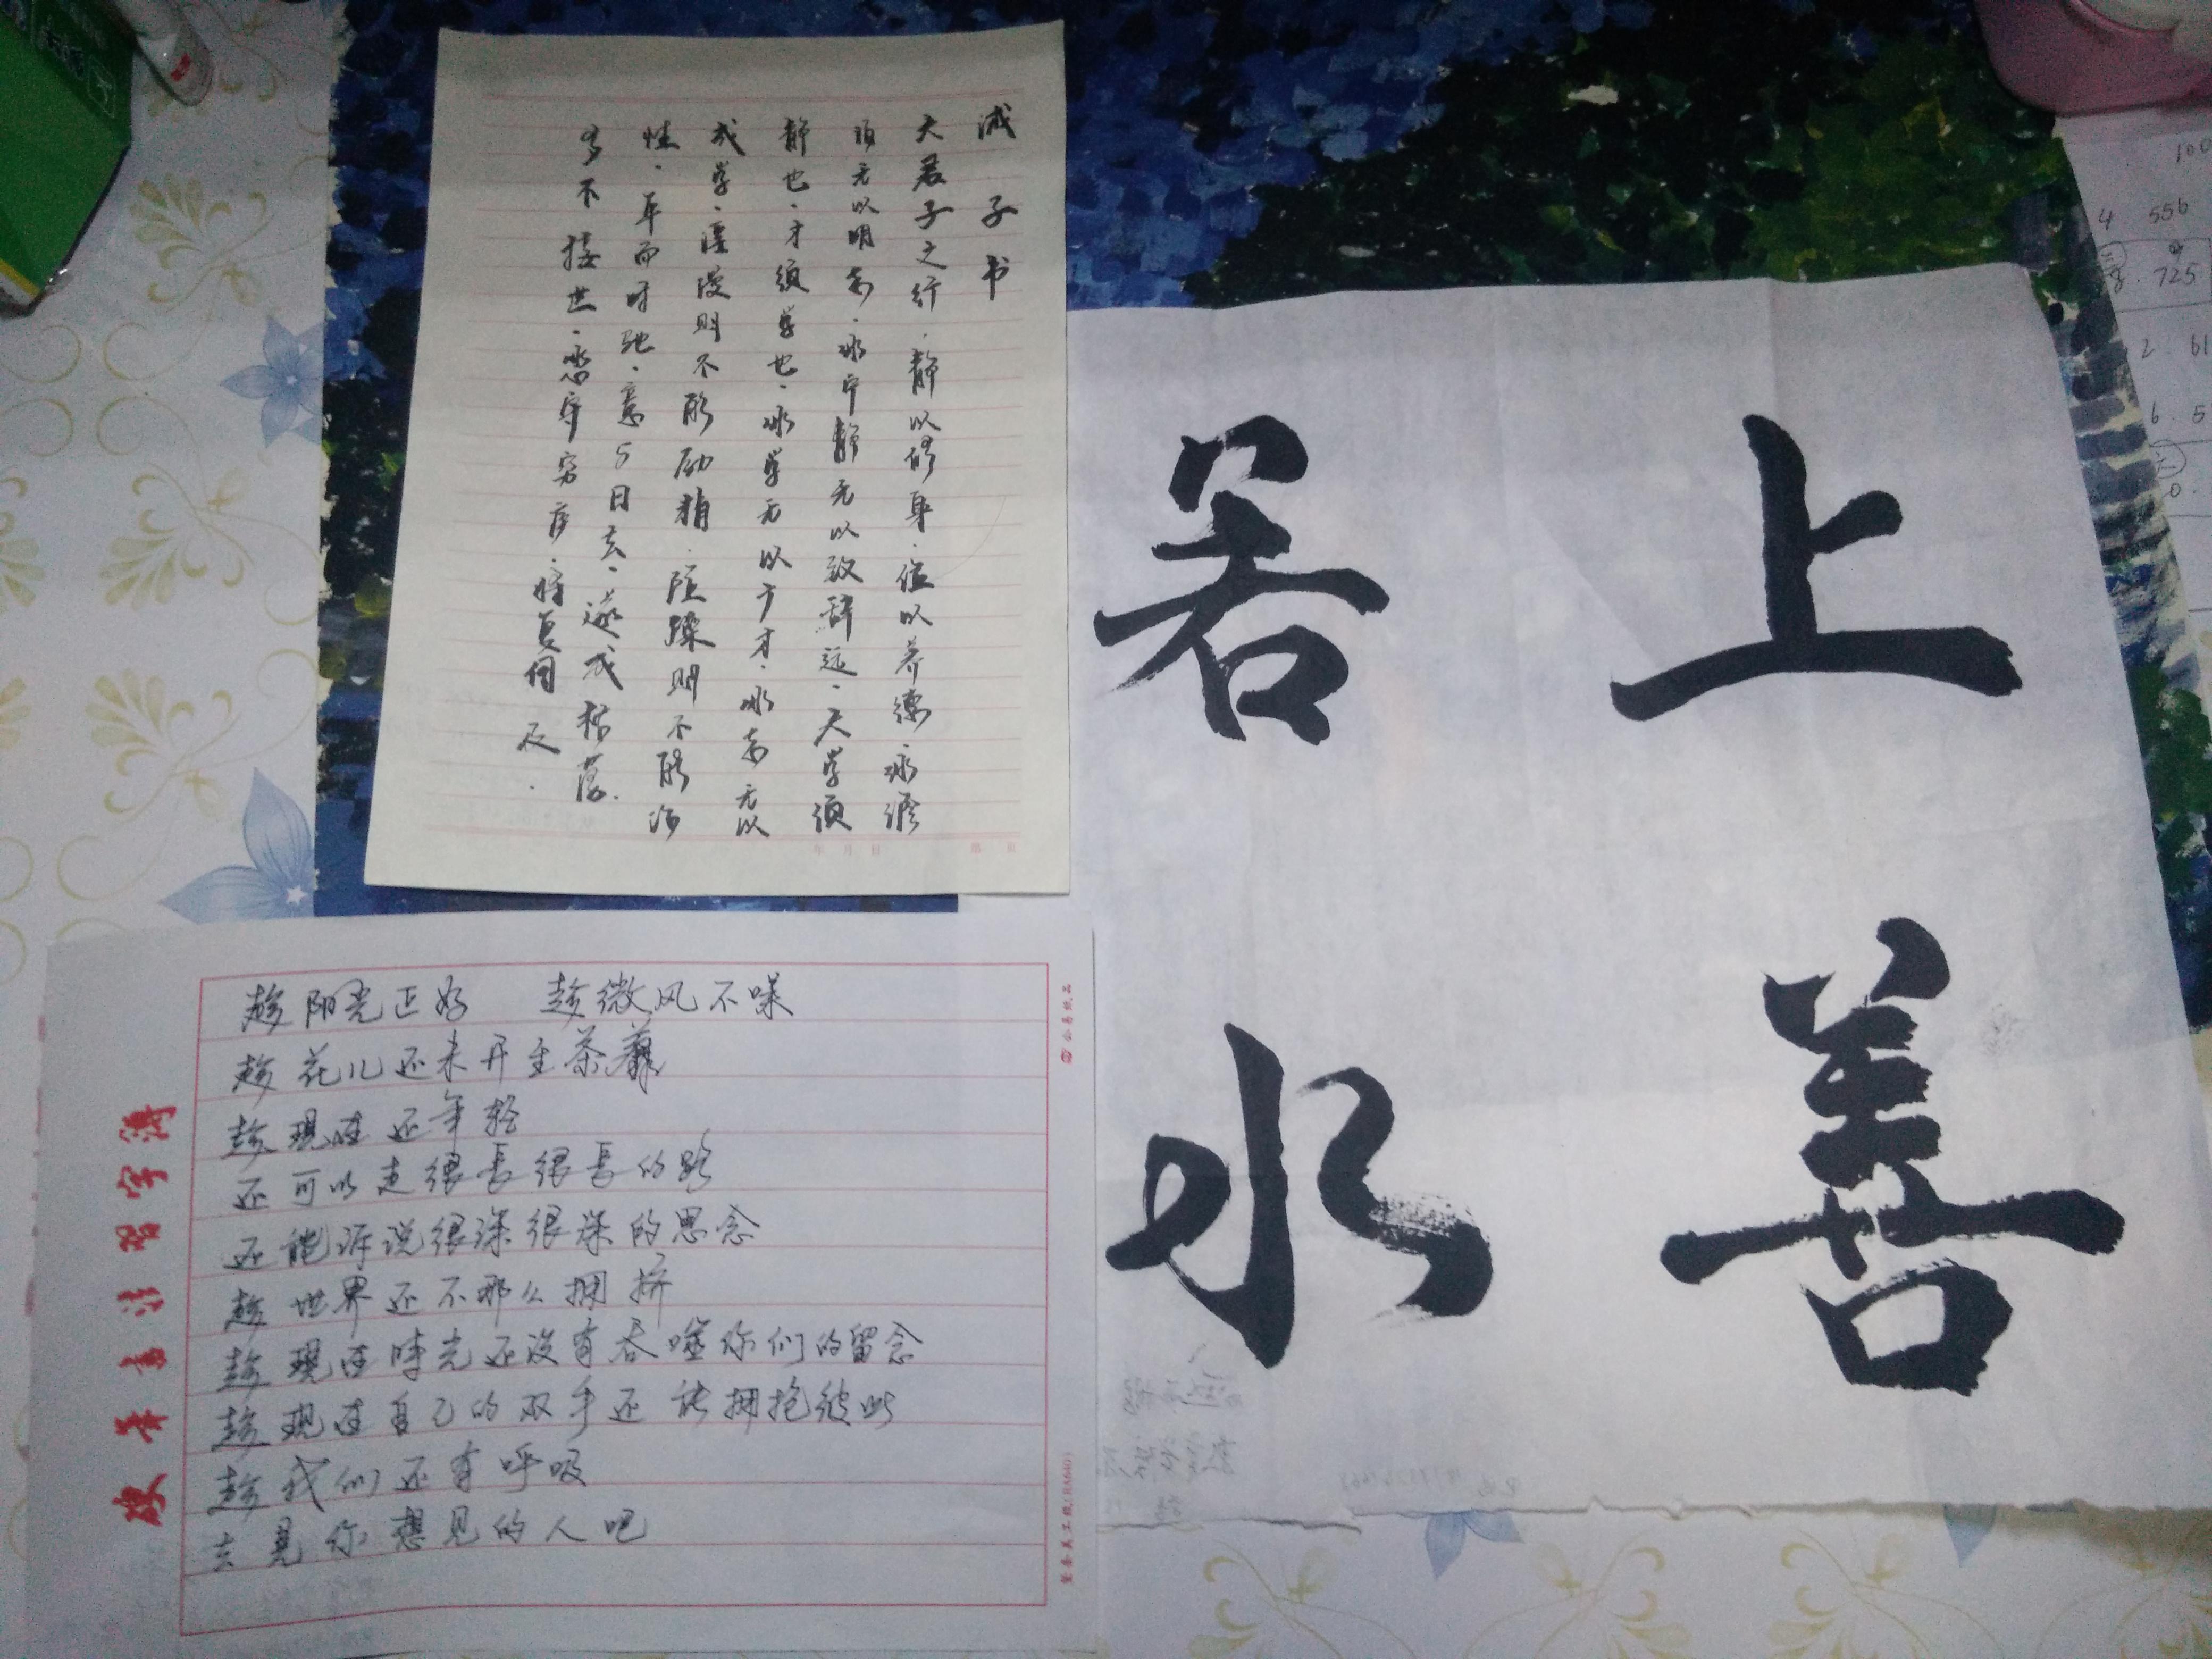 诫子书
夫君子之行.静以修身.俭以养德.非澹
泊无以明志.非宁静无以致
远.夫学须
静也.才须学也.非学无以广才.非志无以
成学.淫漫则不能励精.险躁则不能治
性.年而时驰.意与日去.遂成枯落.
多不接世.悲守穷庐.将复何及.
上善
若水
趁阳光正好 趁微风不噪
趁花儿还未开至荼蘼
趁现在还年轻
还可以走很长很长的路
还能诉说很深很深的思念
趁世界还不那么拥挤
趁现在时光还没有吞噬你们的留念
趁现在自己的双手还能拥抱彼此
趁我们还有呼吸
去见你想见的人吧
硬笔书法习字簿
年 月 日
100
4 556
725
2 61
6. 5
0.